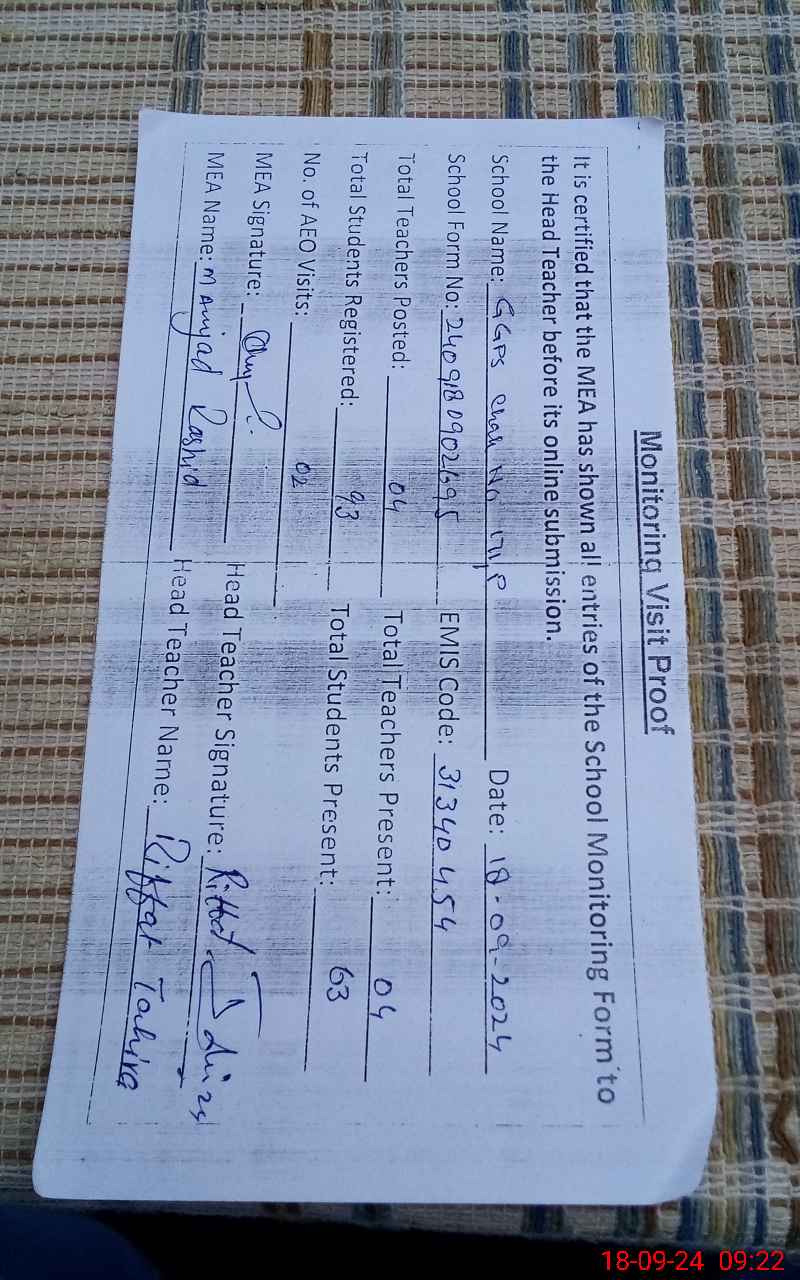 Monitoring Visit Proof
It is certified that the MEA has shown all entries of the School Monitoring Form to
the Head Teacher before its online submission.
School Name: GGPS Chak No 17/P Date: 18-09-2024
School Form No: EMIS Code: 31340454
Total Teachers Posted: 04 Total Teachers Present: 04
Total Students Registered: 93 Total Students Present: 63
No. of AEO Visits: 02
MEA Signature: Head Teacher Signature: Riffat
MEA Name: M Amjad Rashid Head Teacher Name: Riffat Tahira
18-09-24 09:22